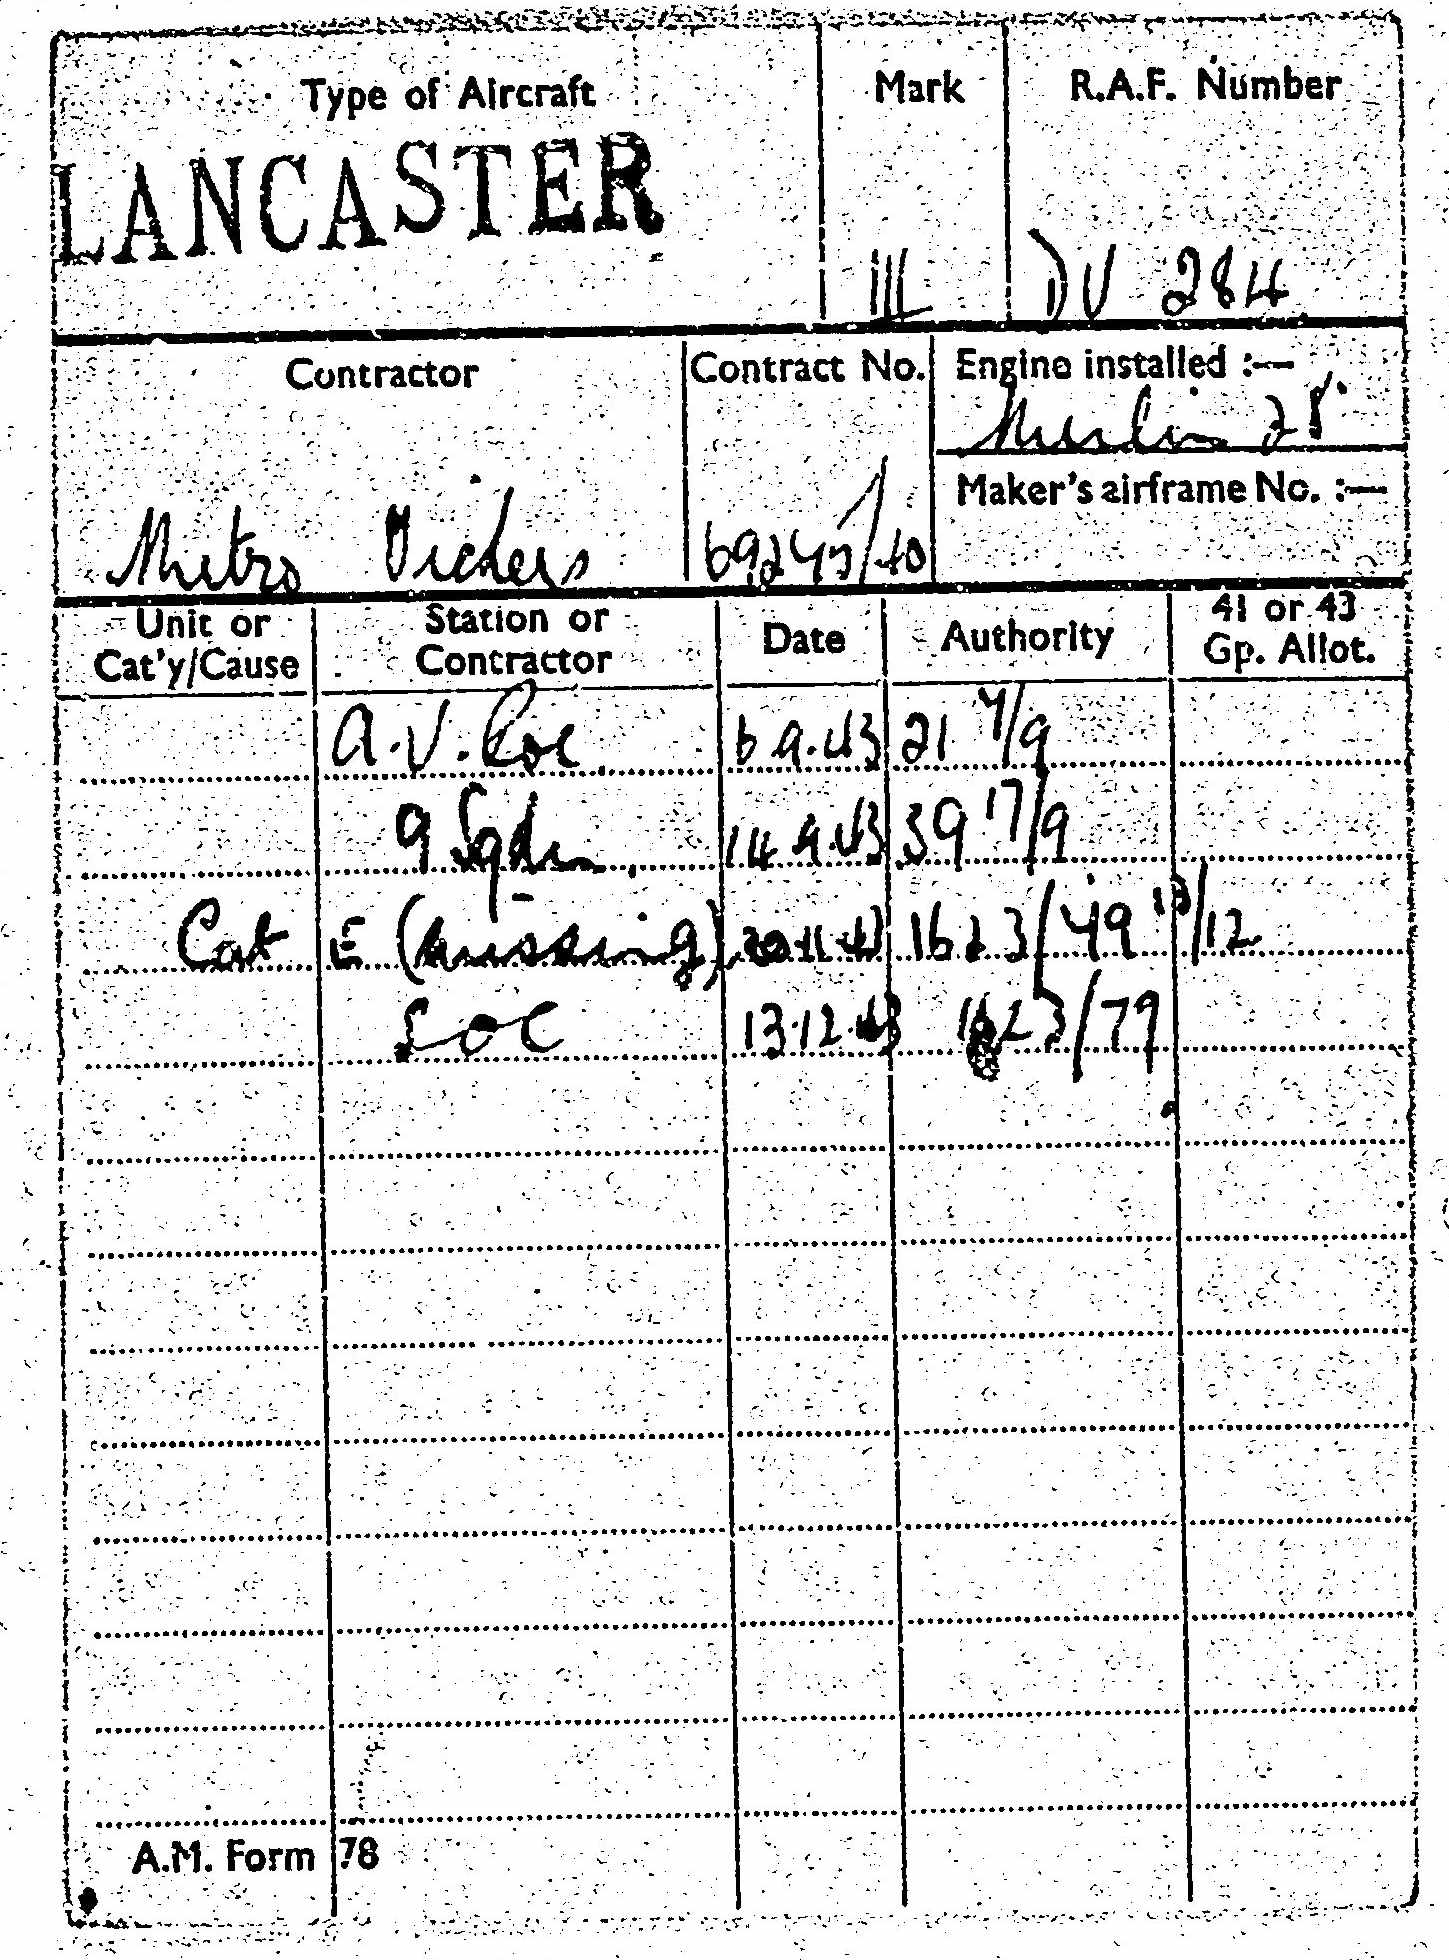 Type of Aircraft Mark R.A.F. Number
LANCASTER
III DV 284
Contractor Contract No. Engine installed :—
Merlin 28.
Maker's airframe No. :—
Metro Vickers /40
Unit or Station or Date Authority 41 or 43
Cat'y/Cause Contractor Gp. Allot.
A.V. Roe 6 9.43 21 7/9
9 Sqdn 14 9.43 39 17/9
Cat E (missing) 1623/49 13/12
SOC 13.12.43 1623/79
A.M. Form 78